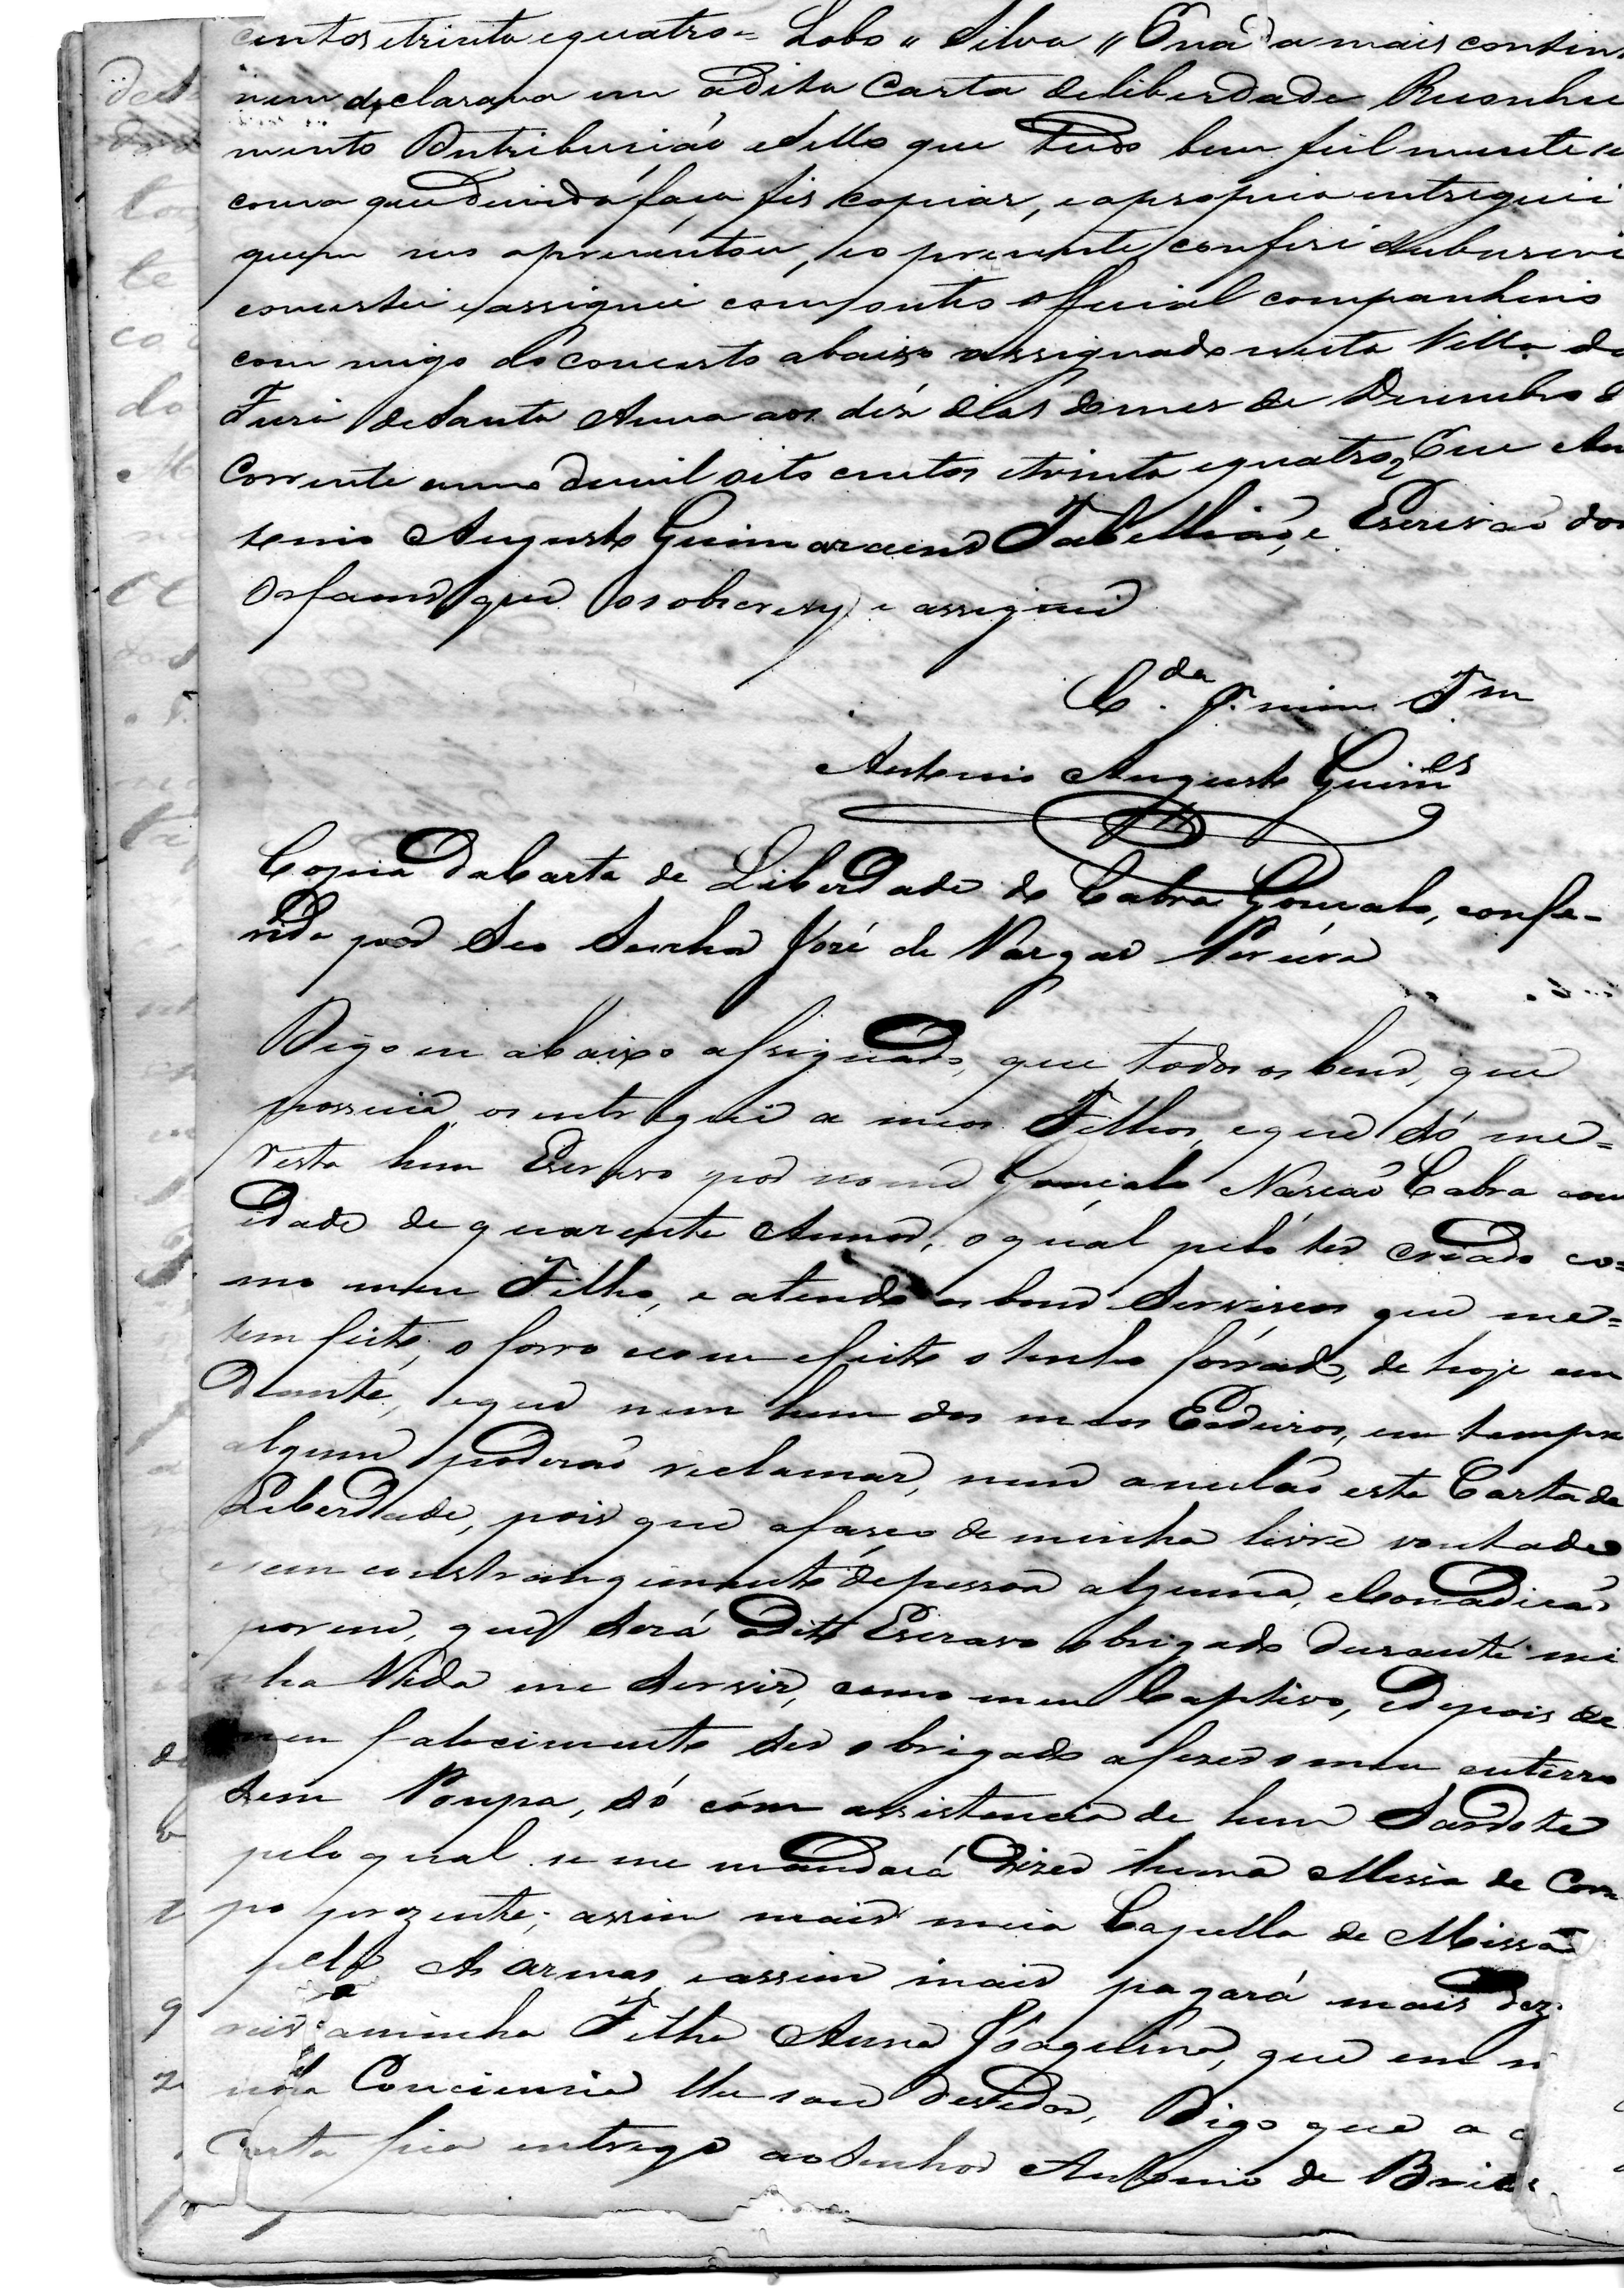 centos e trinta e quatro = Lobo " Silva " E nada mais contin
nem declarava em a dita Carta de liberdade Reconhe
mento Distribuicáo e Sello que tudo bem fielmente e
couza que duvida faça fis copiar, e a propria entreguei
quem me aprezentou, e o prezente conferi Subscrevi
concertei e assignei com outro official companheiro
com migo do concerto abaixo assignado nesta Villa da
Feira de Santa Anna aos dés dias do mes de Dezembro d
Corrente anno de mil oito centos e trinta e quatro, Eu An
tonio Augusto Guimaraens Tabelliaõ, e Escrivaõ dos
Orfaons que o sobscrevy e assignei
C.da P. mim Tam
Antonio Augusto Guim.es
Copia da Carta de Liberdade do Cabra Gonçalo, confe-
rida por Seo Senhor José de Vargas Pereira
Digo eu abaixo assignado, que todos os bens, que
possuia os entreguei a meos Filhos, e que só me=
resta hum Escravo por nome Gonçalo Nascaõ Cabra com
idade de quarenta Annos, o qual pelo ter criado co=
mo meu Filho, e atendo os bons Servicos que me=
tem feito, o forro e com efeito o tenho forrado, de hoje em
diante, e que nem hum dos meos Erdeiros, em tempo
algum poderaõ reclamar, nem anulaõ esta Carta de
Liberdade, pois que a faço de minha livre vontade
e sem constrangimento de pessoa alguma, e Condicaõ
porem, que será o dito Escravo obrigado durante mi
nha Vida me Servir, como meu Captivo, e depois de
meu falecimento ser obrigado a fazer o meu enterro
Sem Pompa, só com assistencia de hum Sardote
pelo qual se me mandará dizer huma Missa de Cor
po prezente; assim mais meia Capella de Missa
pelas Armas, e assim mais pagará mais dez
reis a minha Filha Anna Joaquina, que em m
nha Conciencia lhe sou devedor, Digo que a
Carta fica entrege ao Senhor Antonio de Brito